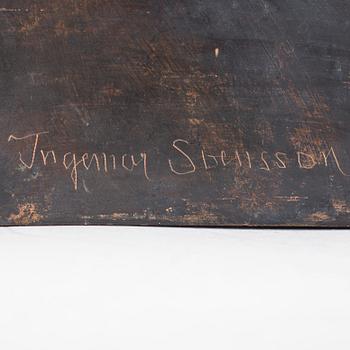 Ingemar Svensson